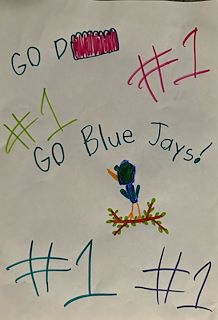 GO D
#1
#1
GO Blue Jays!
#1
#1